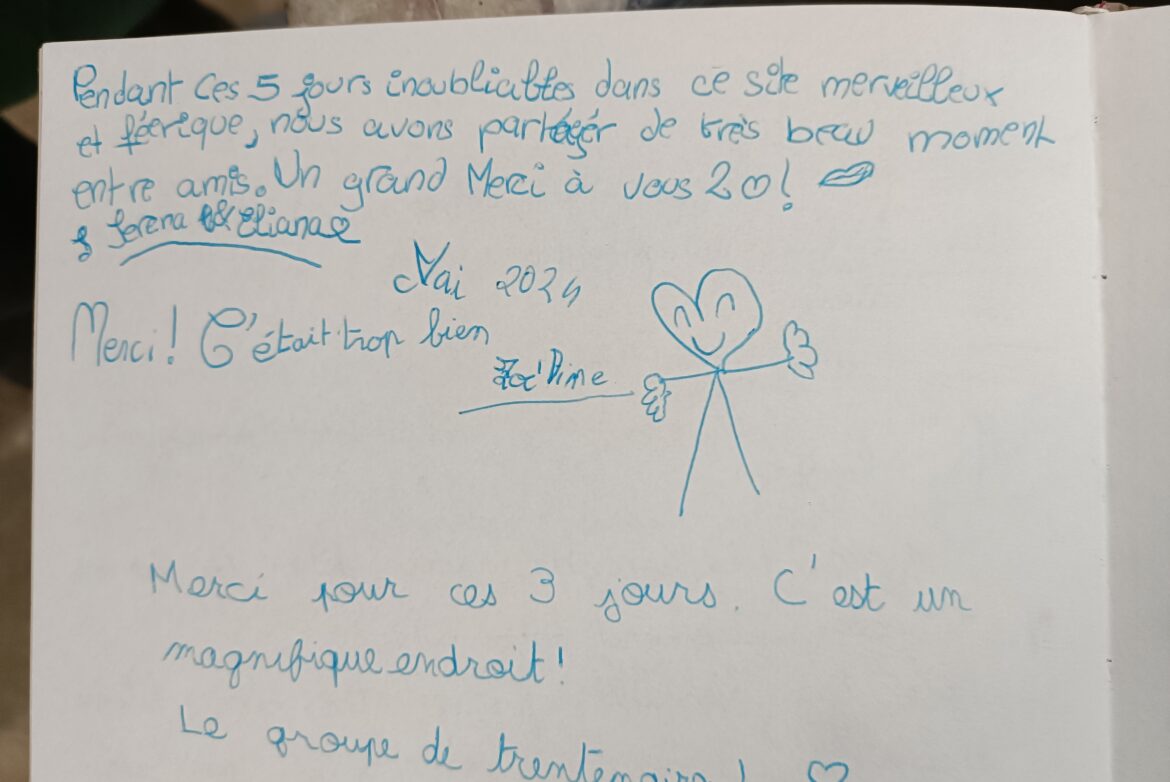 Pendant ces 5 jours inoubliables dans ce site merveilleux
et féerique, nous avons partagér de très beau moment
entre amis. Un grand Merci à vous 20!
Serena & Eliana
Mai 2024
Merci! C'était trop bien
Merci pour ces 3 jours. C'est un
magnifique endroit!
Le groupe de trentenaire!